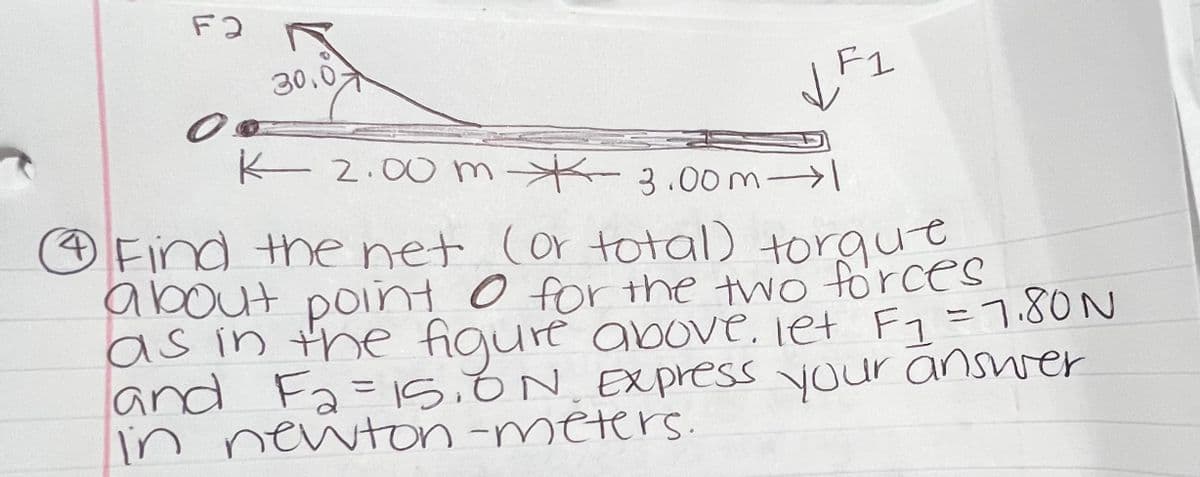 F2
F1
30.0°
O
2.00 m 3.00m
④ Find the net (or total) torque
about point O for the two forces
as in the figure above. let F1 = 7.80N
and F2 = 15.0 N. Express your answer
in newton-meters.